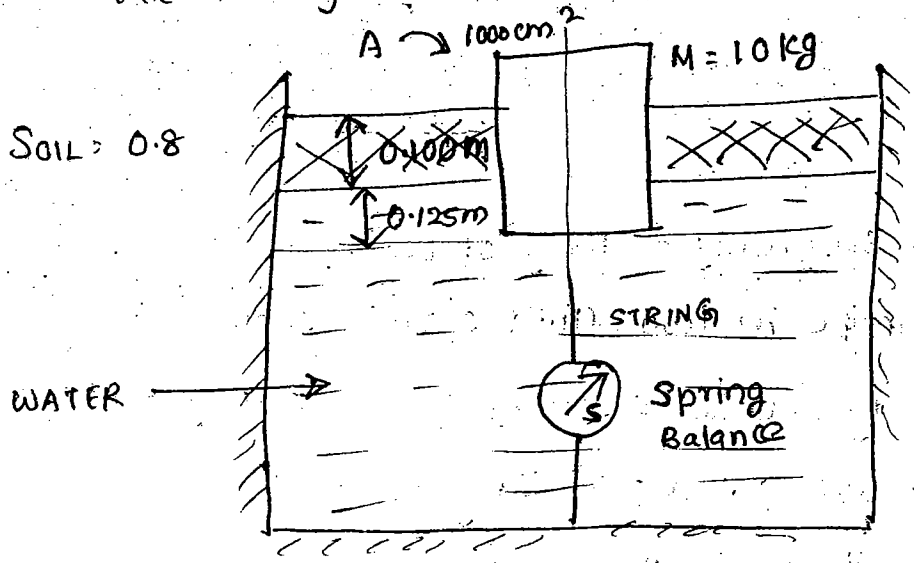 A 1000 cm²
M = 10 kg
SOIL = 0.8
0.100m
0.125m
STRING
WATER
S
Spring
Balance